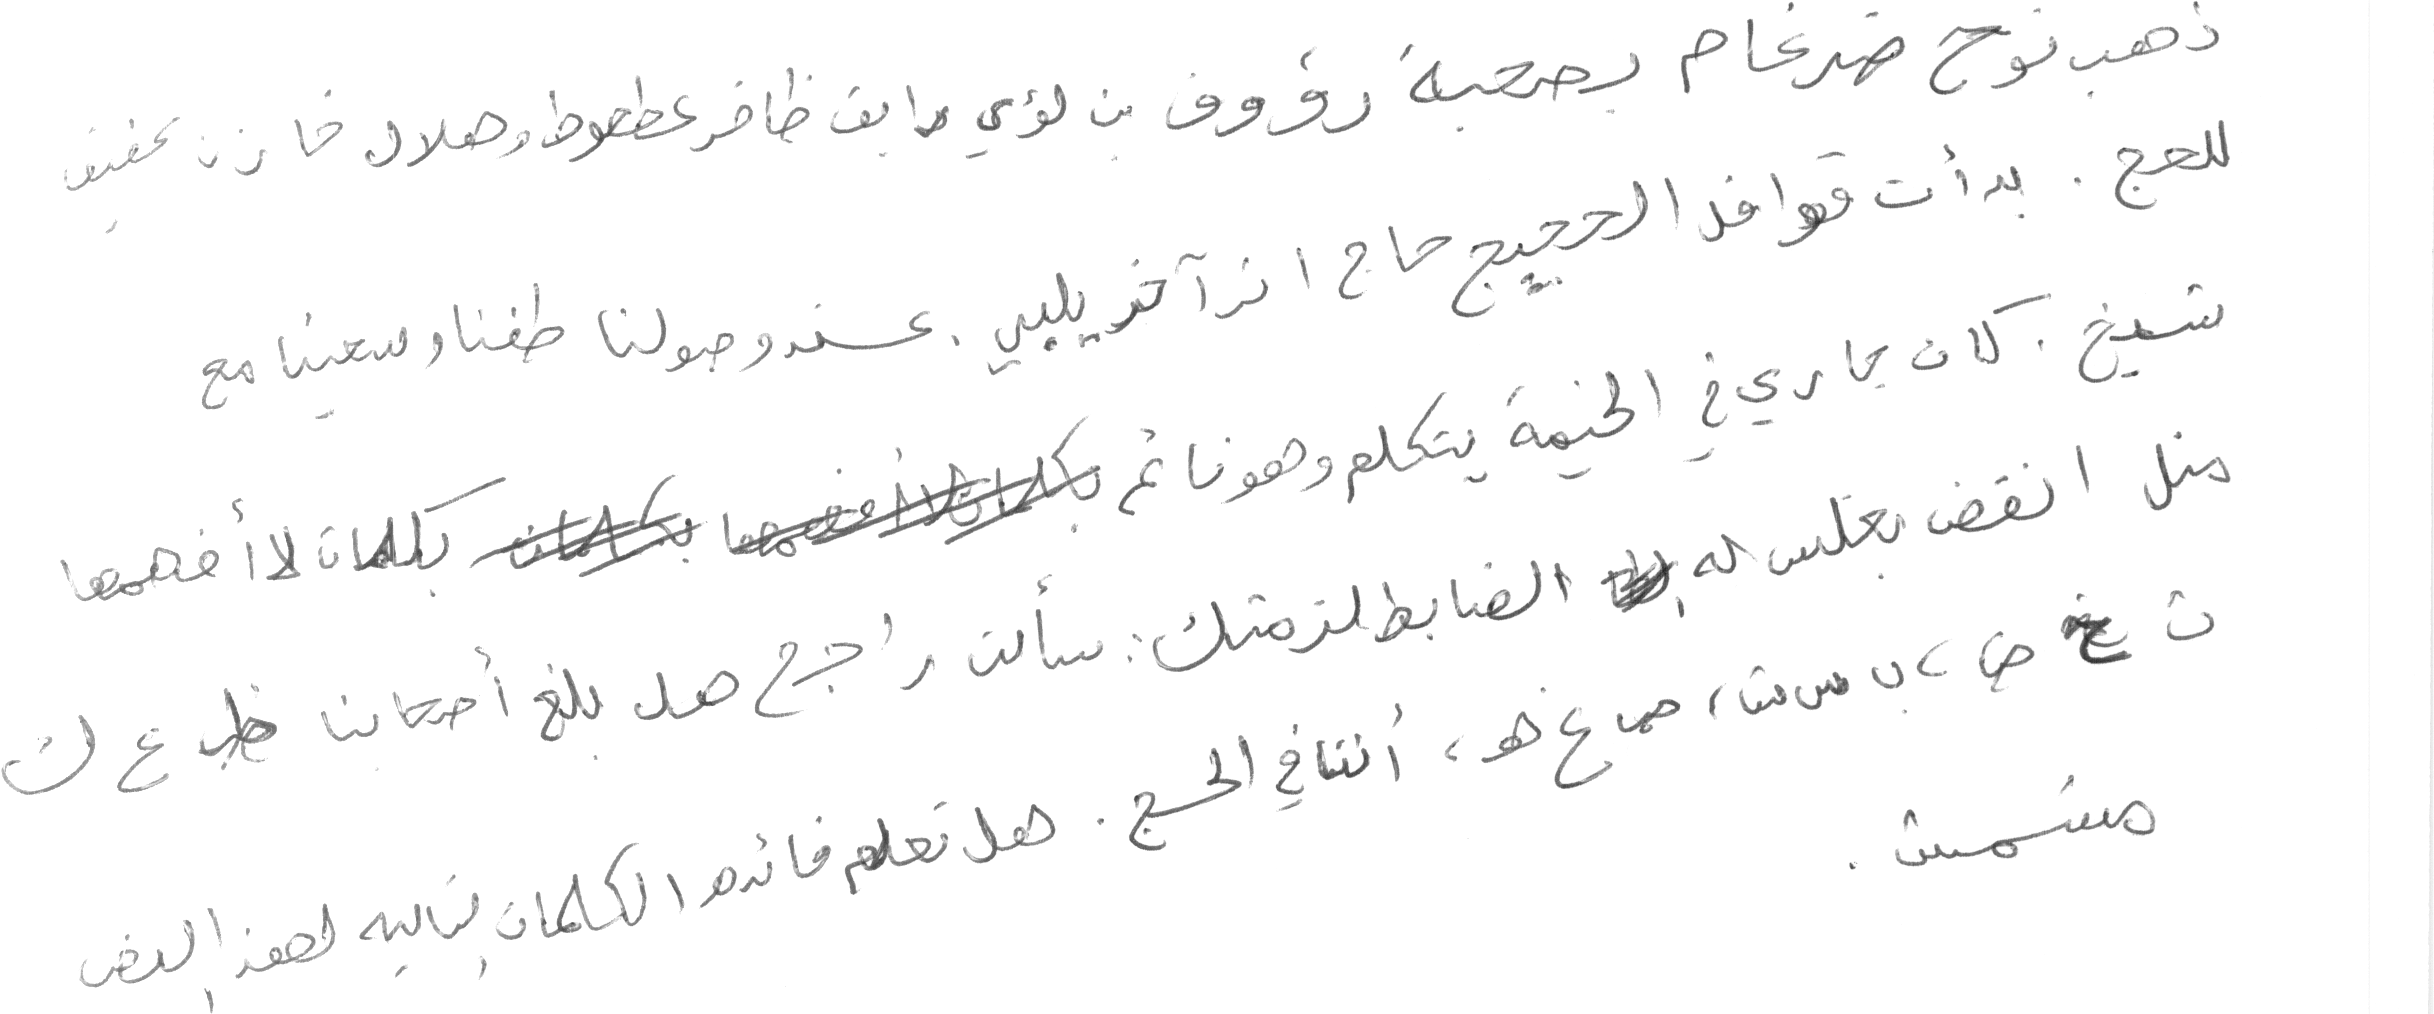 ذهب نوح ضرغام بصحبة رؤوف بن لؤي رايق ظافر عطعوط وهلال خازن عفيف
للحج . بدأت قوافل الحجيج حاج اثر آخر يلبي . عند وصولنا طفنا وسعينا مع
شيخ . كان جاري في الخيمة يتكلم وهو نائم بكلمات لا أفهمها
مثل انقض بغلس له الضابط لزمتك . سألت راجح هل بلغ أصحابنا ظب ع ك
ث غ ض ء ب س ش ، ص ع هو ، أننا في الحج . هل تعلم فائده الكلمات التاليه لهذا النص
مشمش .